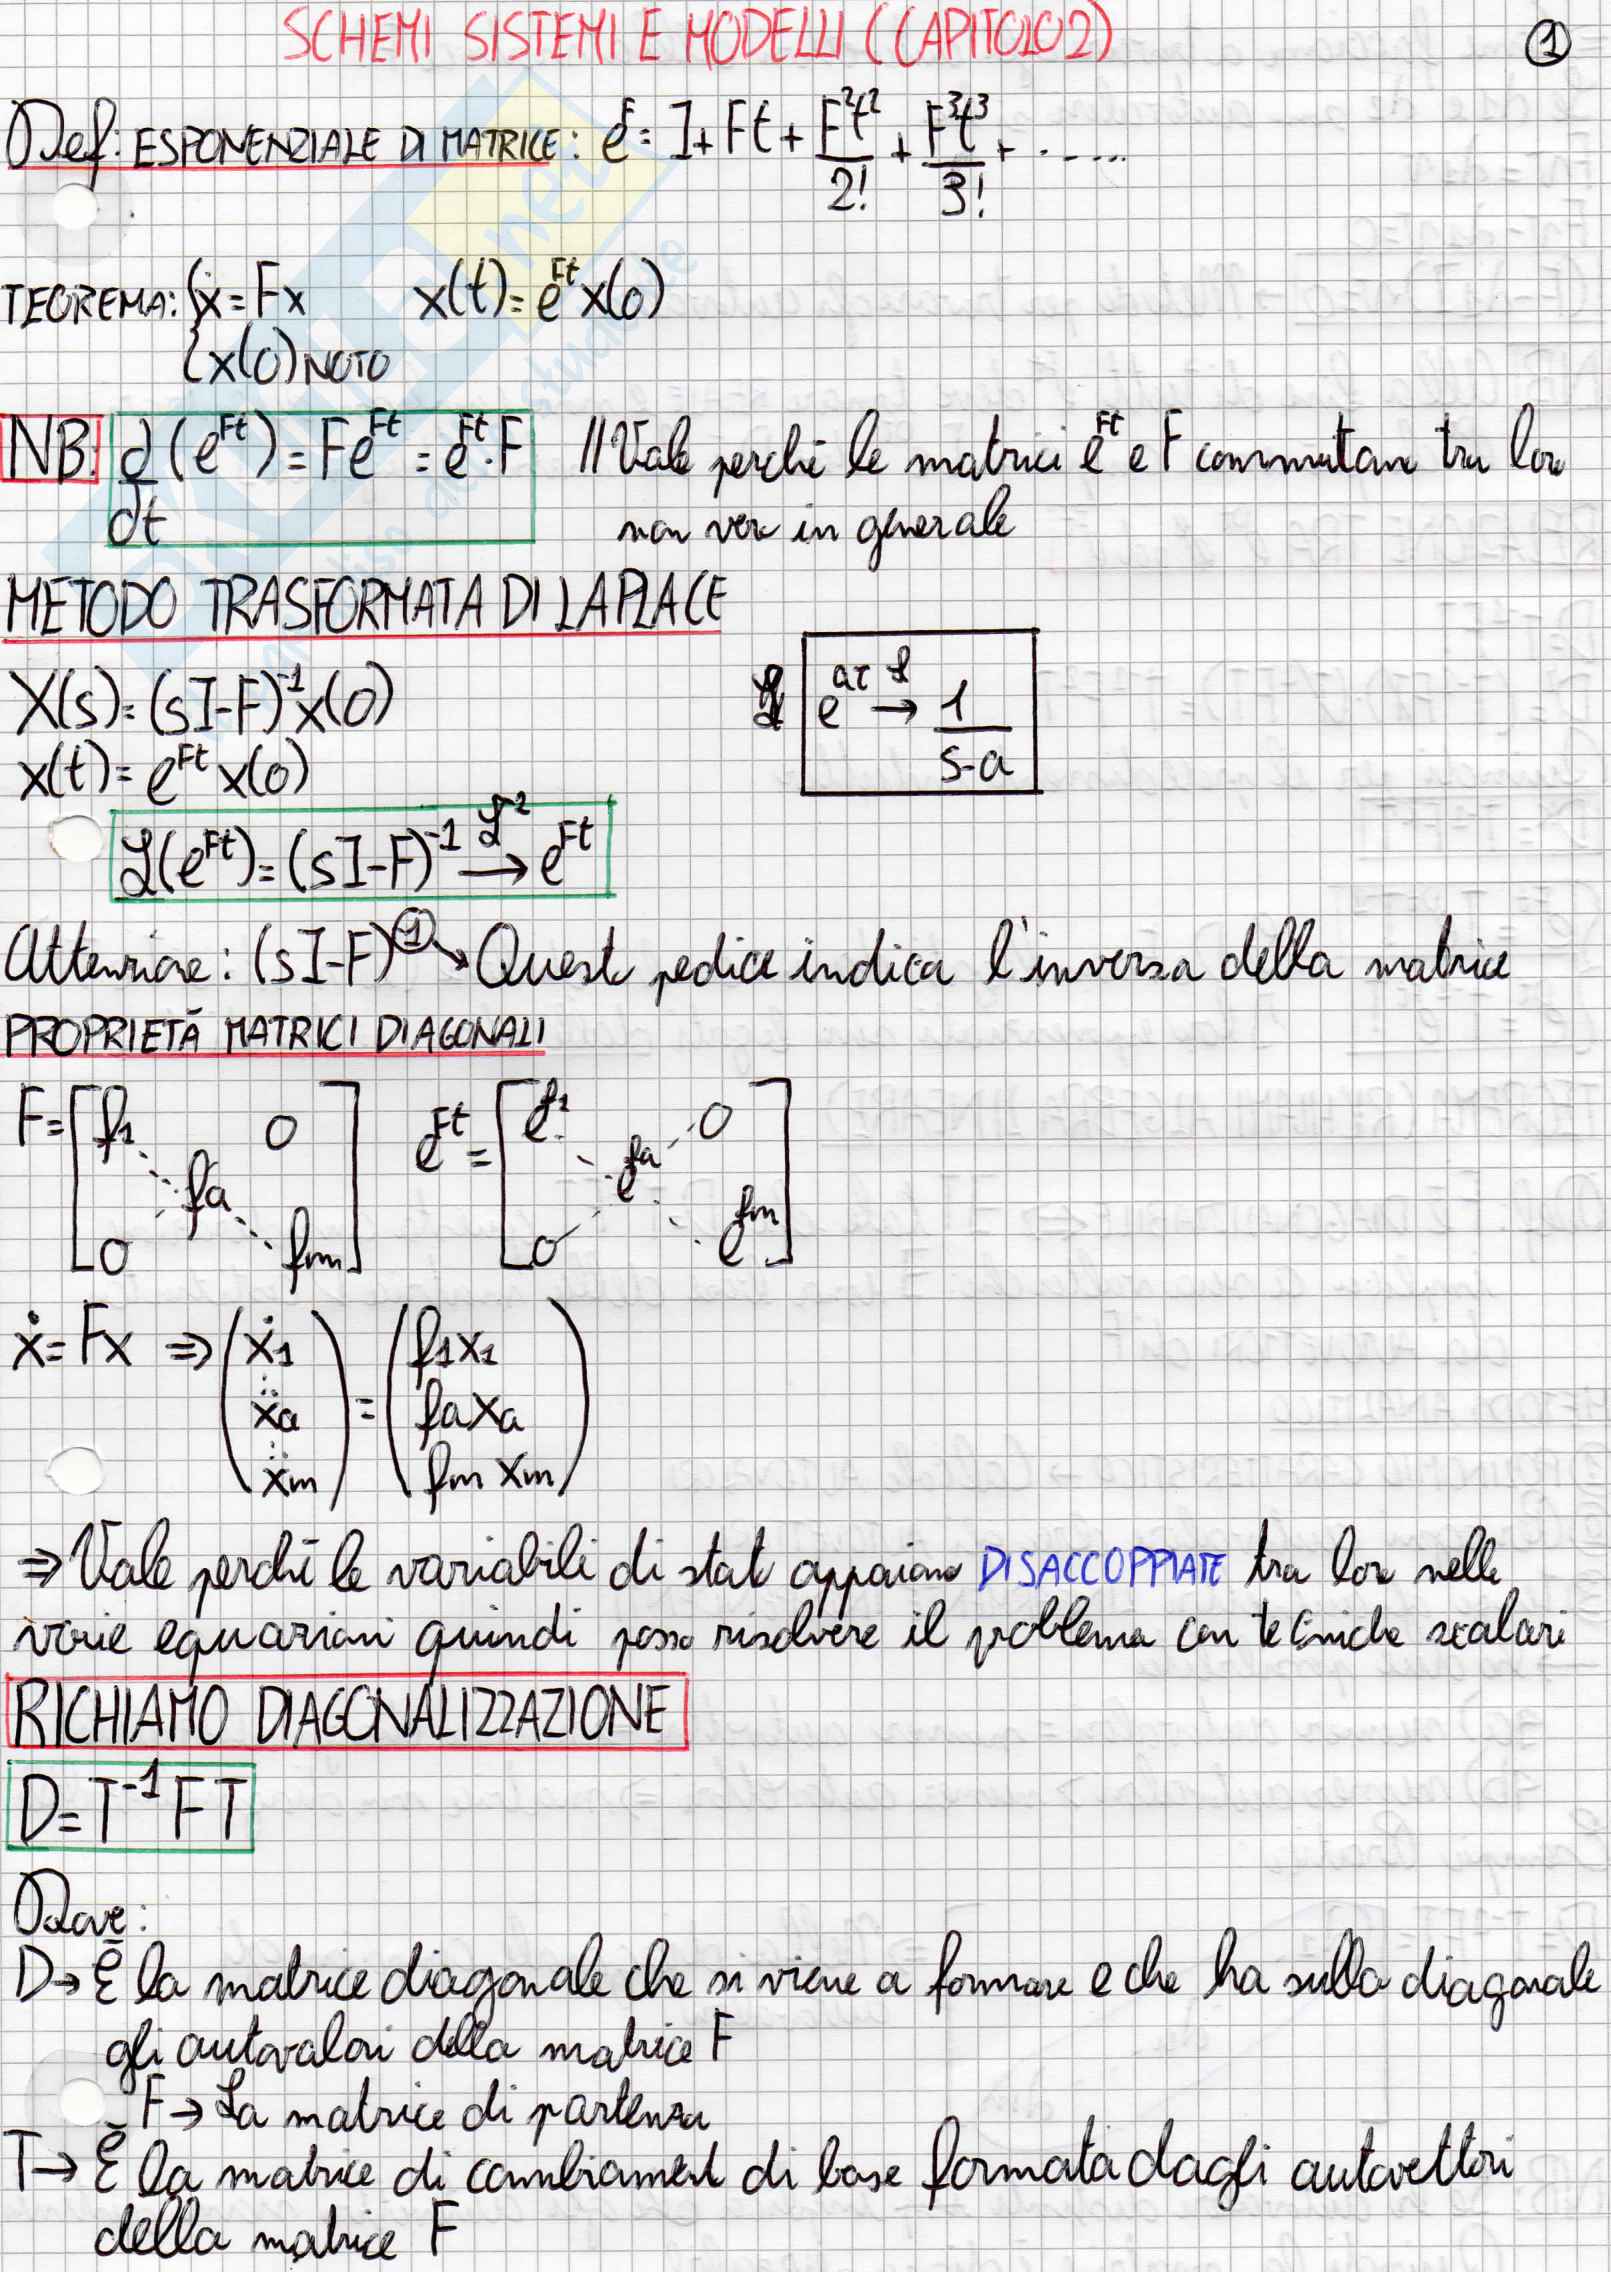 SCHEMI SISTEMI E MODELLI (CAPITOLO 2)
1
Def: ESPONENZIALE DI MATRICE: e^F = I + Ft + F²t²/2! + F³t³/3! + .....
TEOREMA: { ẋ = Fx    x(t) = e^Ft x(0)
{ x(0) NOTO
NB: d/dt (e^Ft) = Fe^Ft = e^Ft · F    // Vale perché le matrici e^Ft e F commutano tra loro
non vero in generale
METODO TRASFORMATA DI LAPLACE
X(s) = (sI-F)^-1 x(0)
e^at ℒ→ 1/(s-a)
x(t) = e^Ft x(0)
ℒ(e^Ft) = (sI-F)^-1 → e^Ft
Attenzione: (sI-F)^-1 → Questo pedice indica l'inversa della matrice
PROPRIETÀ MATRICI DIAGONALI
F = [ f1 0 fa 0 fm ]    e^Ft = [ e^f1 0 e^fa 0 e^fm ]
ẋ = Fx ⇒ ( ẋ1 ẋa ẋm ) = ( f1x1 faxa fm xm )
⇒ Vale perché le variabili di stato appaiono DISACCOPPIATE tra loro nelle
varie equazioni quindi posso risolvere il problema con tecniche scalari
RICHIAMO DIAGONALIZZAZIONE
D = T^-1 F T
Dove:
D → È la matrice diagonale che si viene a formare e che ha sulla diagonale
gli autovalori della matrice F
F → La matrice di partenza
T → È la matrice di cambiamento di base formata dagli autovettori
della matrice F